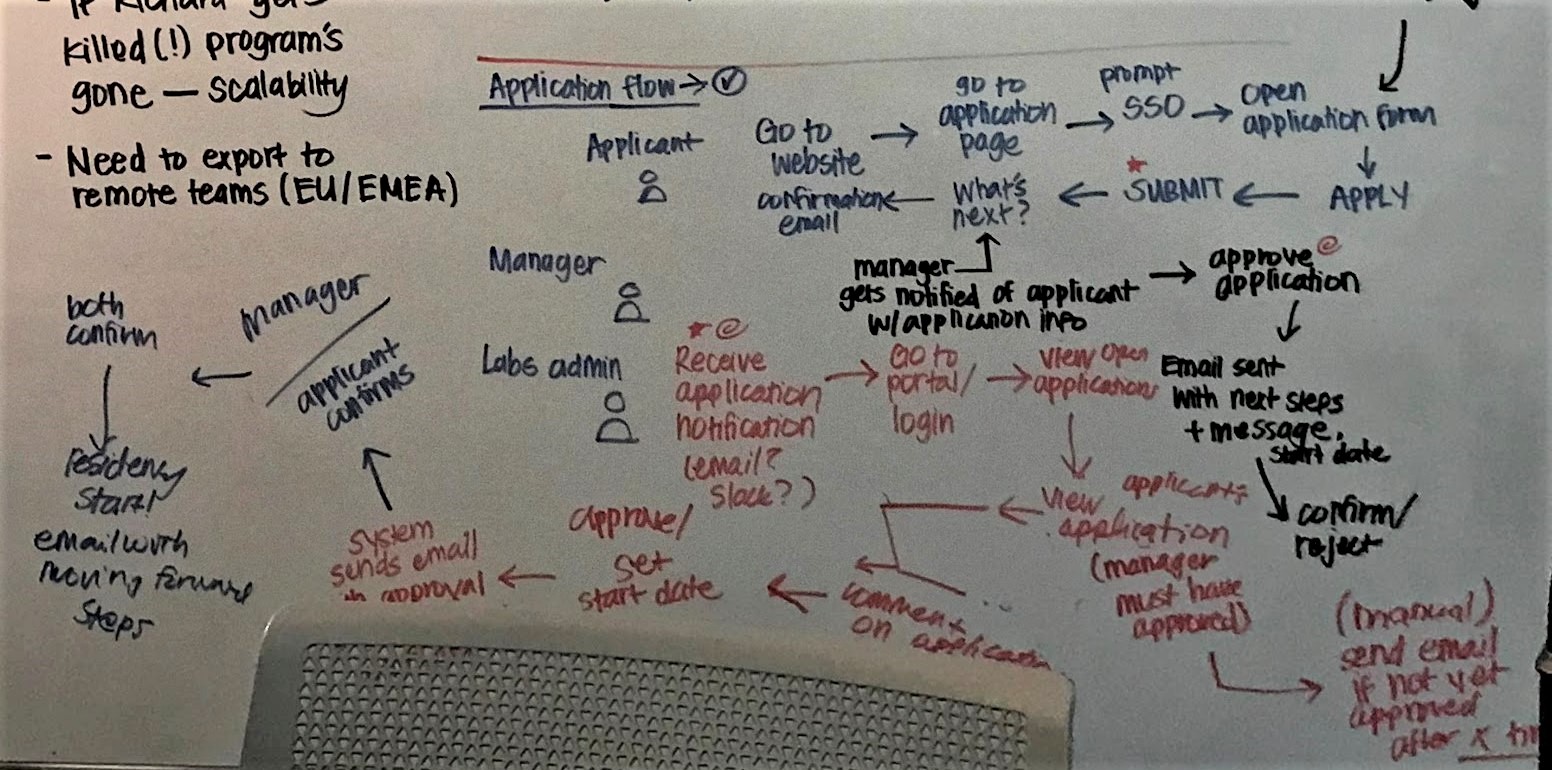 - If Richard gets
killed (!) program's
gone — scalability
- Need to export to
remote teams (EU/EMEA)
Application flow →
Applicant
Go to
website
→
go to
application
page
→
prompt
SSO
→
Open
application form
↓
APPLY
←
SUBMIT
←
What's
next?
←
confirmation
email
Manager
manager
gets notified of applicant
w/application info
→
approve
application
↓
Email sent
with next steps
+ message,
start date
confirm/
reject
Labs admin
Receive
application
notification
(email?
Slack?)
→
Go to
portal/
login
→
view open
applications
↓
view applicants
application
(manager
must have
approved)
(manual)
send email
if not yet
approved
after x
←
comment
on application
←
approve/
set
start date
←
system
sends email
approval
manager
applicant
confirms
←
both
confirm
↓
residency
start!
email with
moving forward
steps